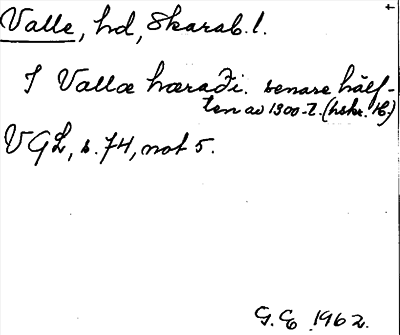 Valle, hd, Skarab. l.
I Vallæ hæraði. senare hälf-
ten av 1300-t. (hskr. 16.)
VGL, s. 74, not 5.
G. E 1962.